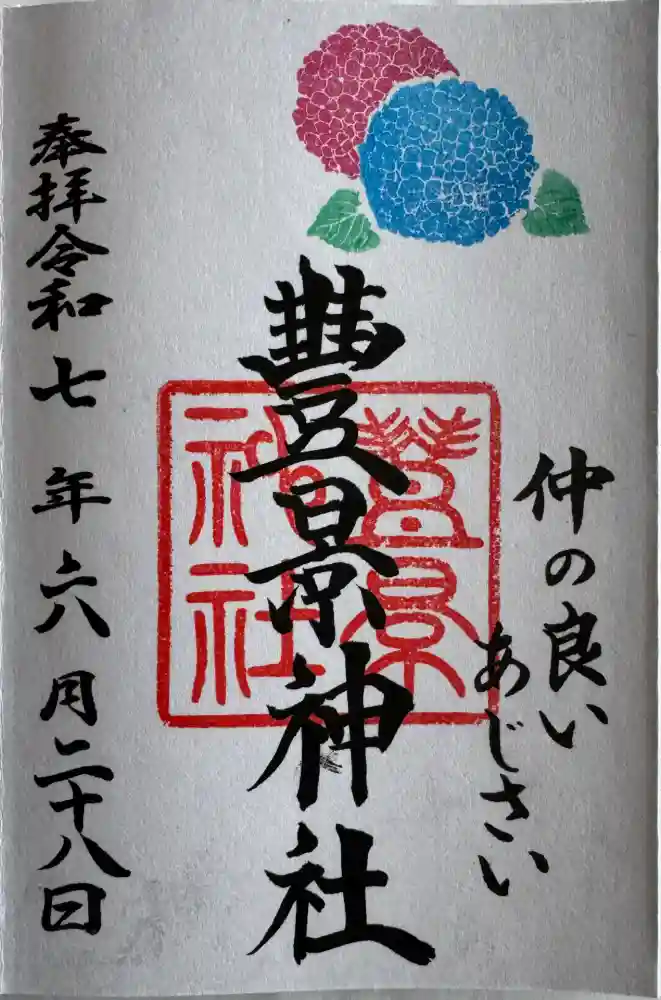 仲の良い
あじさい
豐景神社
豐景
神社
奉拝令和七年六月二十八日